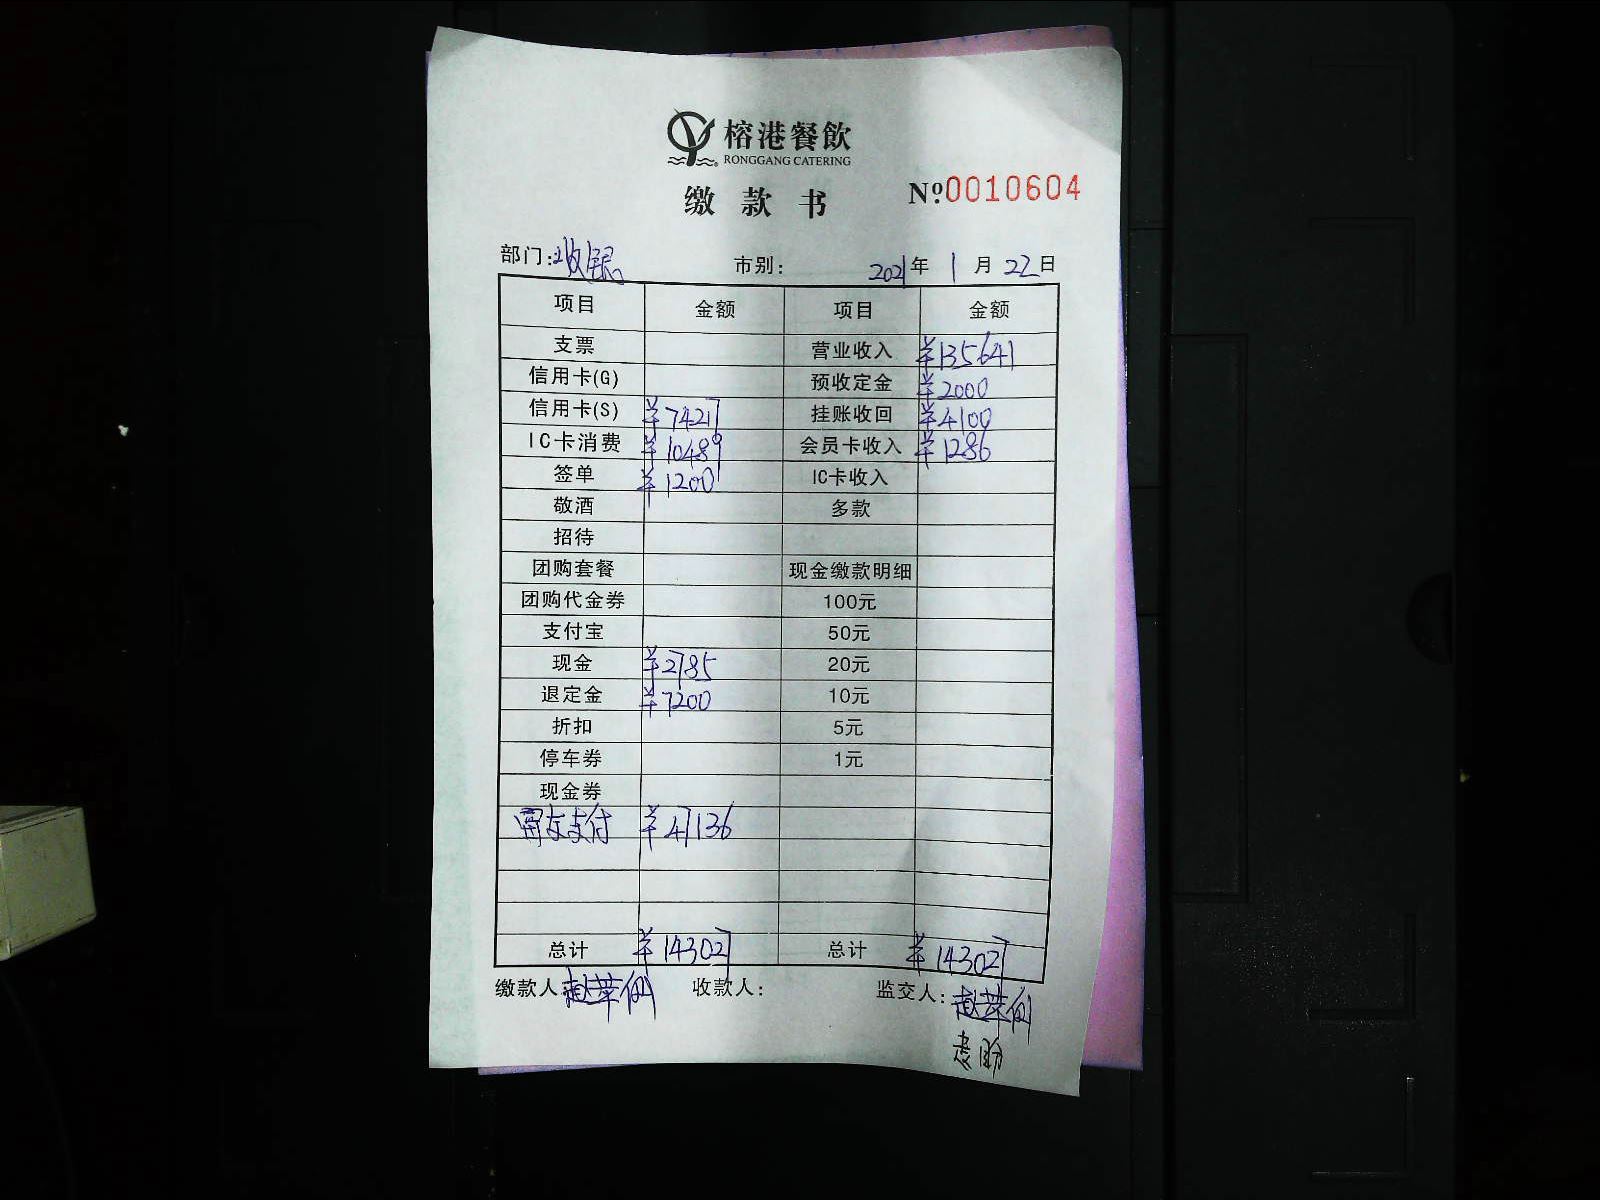 榕港餐飲
RONGGANG CATERING
缴款书 Nº0010604
部门:收银 市别: 2021年1月22日
项目 金额 项目 金额
支票 营业收入 ¥135641
信用卡(G) 预收定金 ¥2000
信用卡(S) ¥74217 挂账收回 ¥4100
IC卡消费 ¥10489 会员卡收入 ¥1286
签单 ¥1200 IC卡收入
敬酒 多款
招待
团购套餐 现金缴款明细
团购代金券 100元
支付宝 50元
现金 ¥2785 20元
退定金 ¥7200 10元
折扣 5元
停车券 1元
现金券
支付 ¥47136
总计 ¥143027 总计 ¥143027
缴款人: 收款人: 监交人: